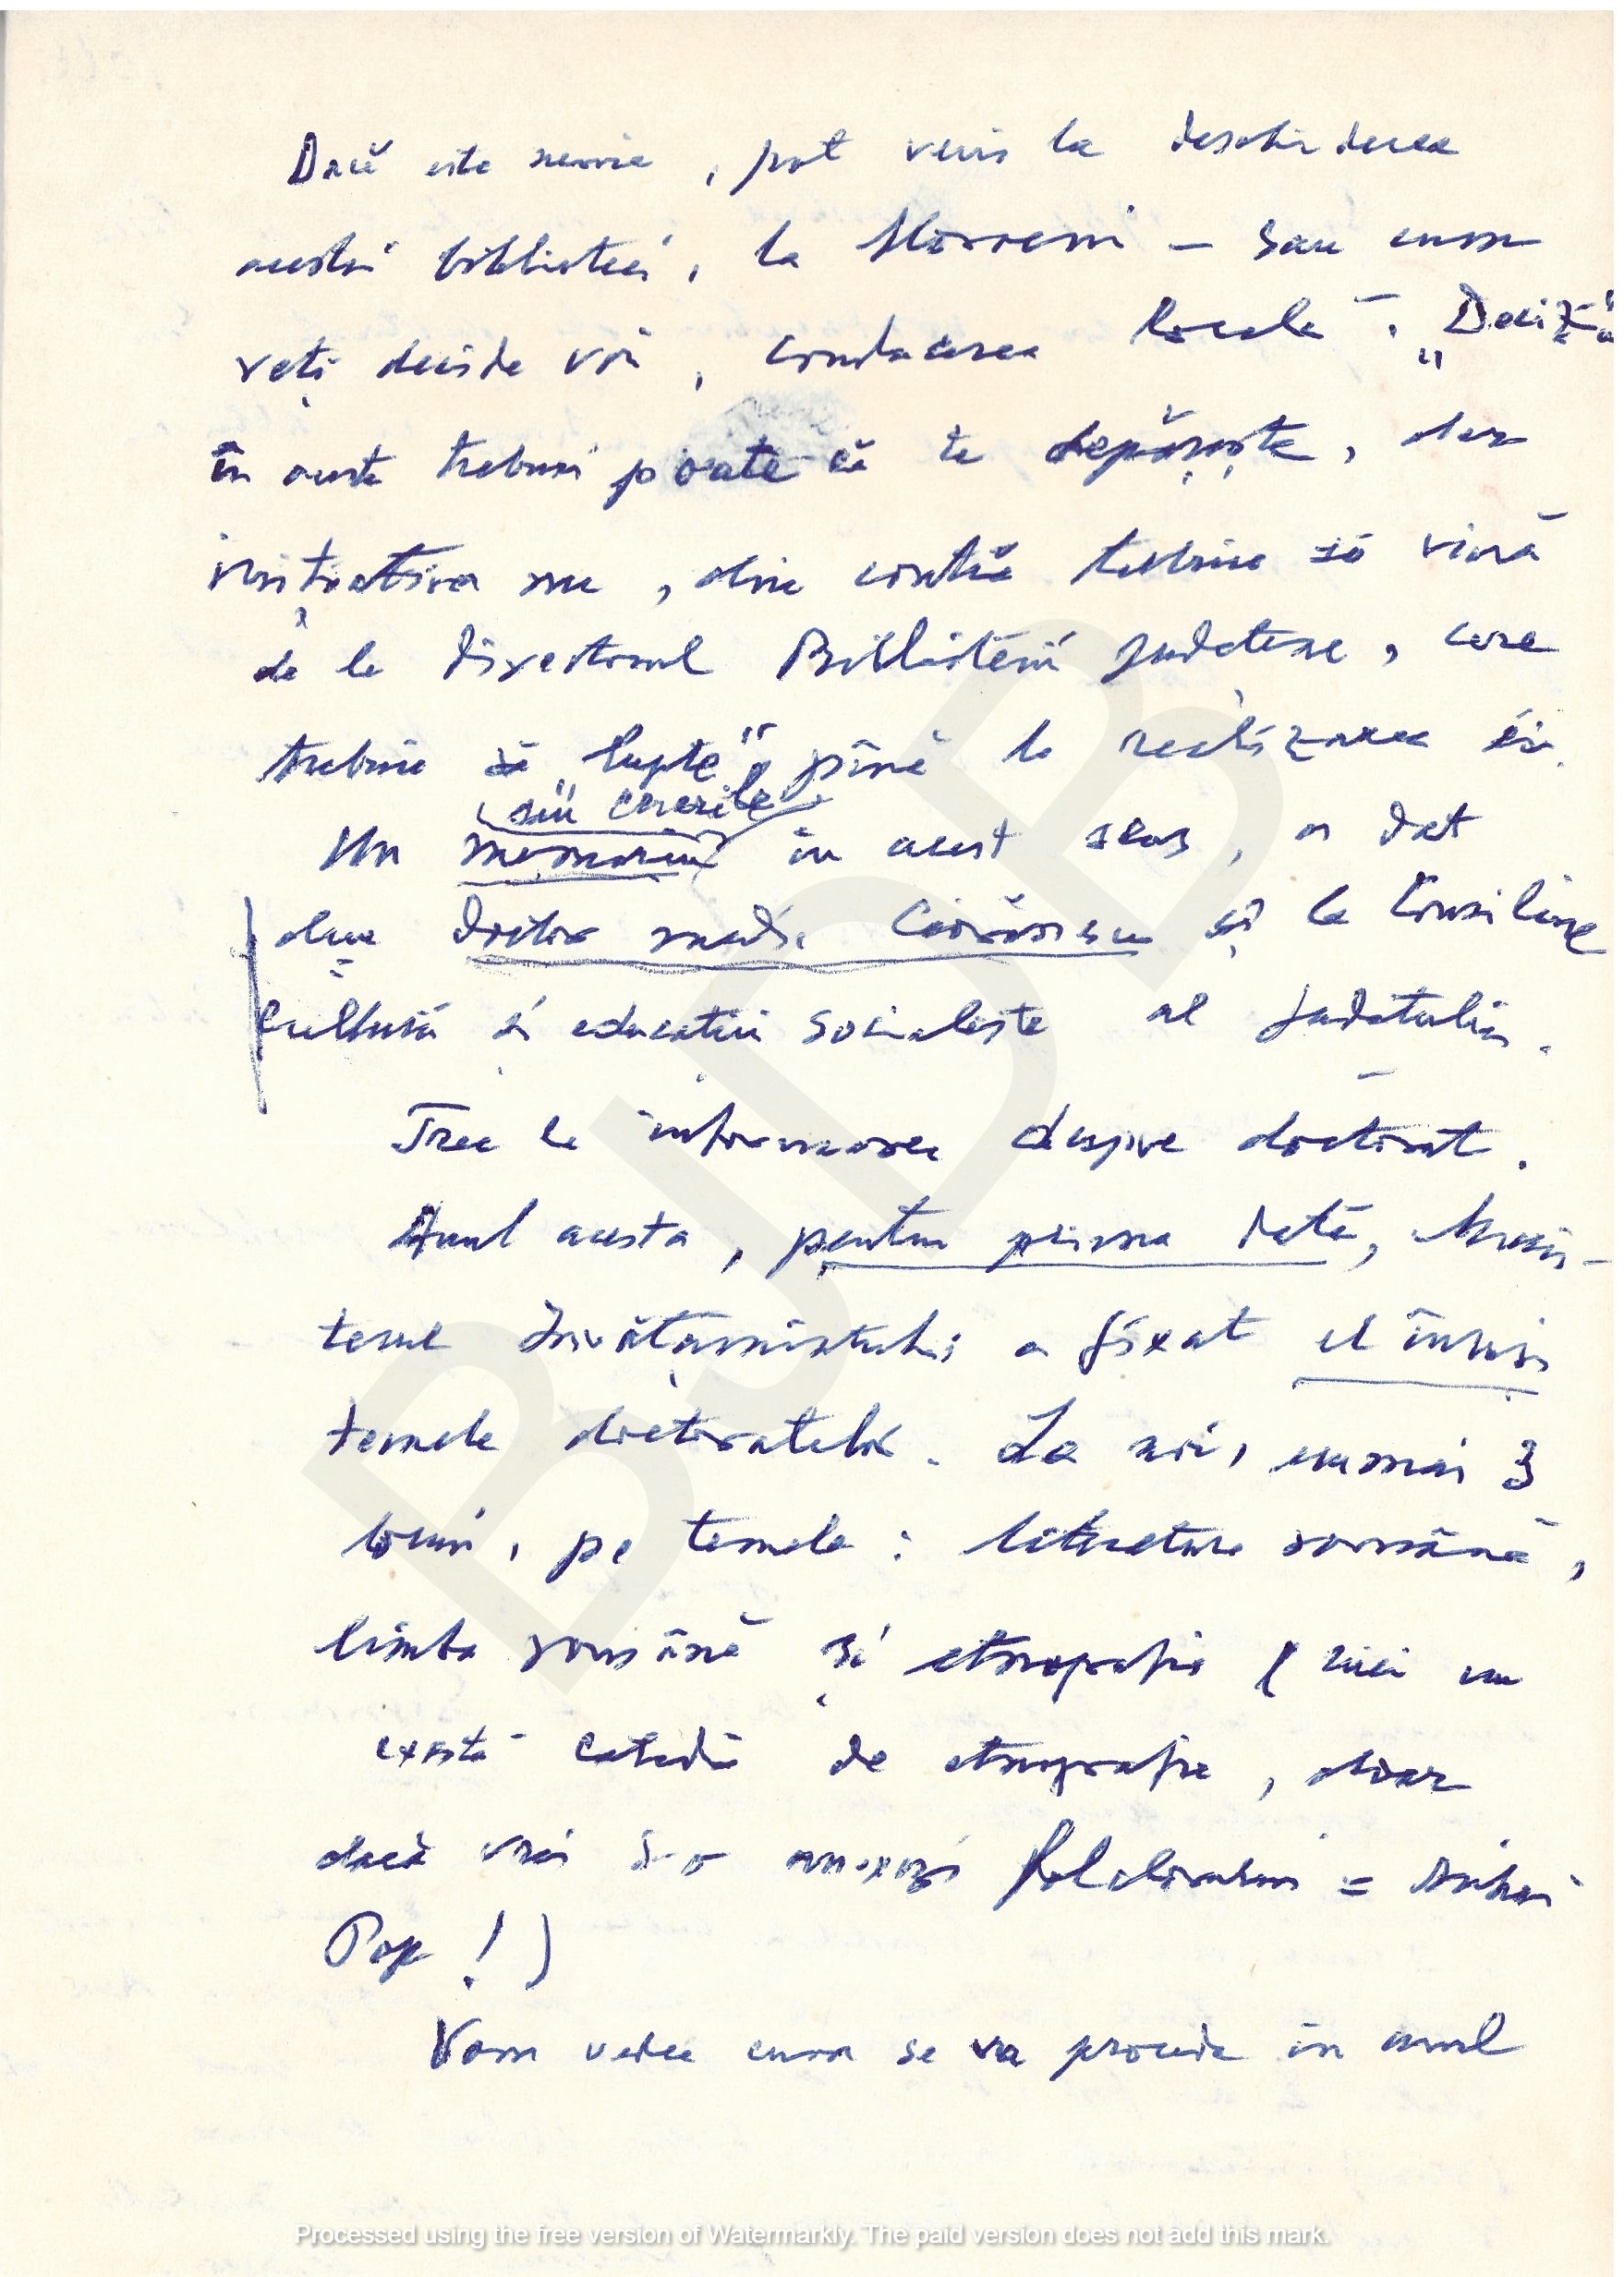 Dacă este nevoie, pot veni la deschiderea
acestei biblioteci, la Moroeni – sau cum
veți decide voi, conducerea locală. „Decizia
în aceste treburi poate că te depășește, dar
inițiativa nu, din contră trebuie să vină
de la Directorul Bibliotecii Județene, care
trebuie să „lupte" pînă la realizarea ei.
(sau cererile)
Un memoriu în acest sens, a dat
doar doctor medic și la Consiliul
Culturii și educației socialiste al Județului.
Trec la informarea despre doctorat.
Anul acesta, pentru prima dată, Minis-
terul Învățămîntului a fixat el însuși
temele doctoratelor. La noi, numai 3
locuri, pe temele: literatura română,
limba română și etnografie (nici nu
există catedră de etnografie, doar
dacă vrei s-o anexezi folclorului = Mihai
Pop!)
Vom vedea cum se va proceda în anul
BJDB
Processed using the free version of Watermarkly. The paid version does not add this mark.